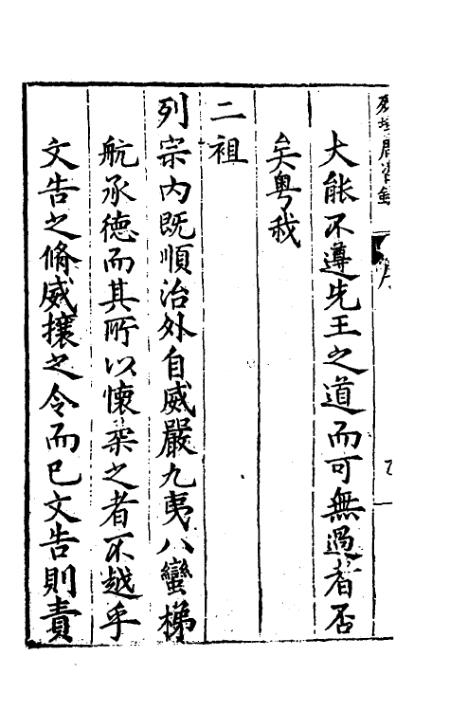 大能不遵先王之道而可無過者否
矣粤我
二祖
列宗内既順治外自威嚴九夷八蠻梯
航承德而其所以懷柔之者不越乎
文告之脩威攘之令而已文告則責
殊域周咨錄
序